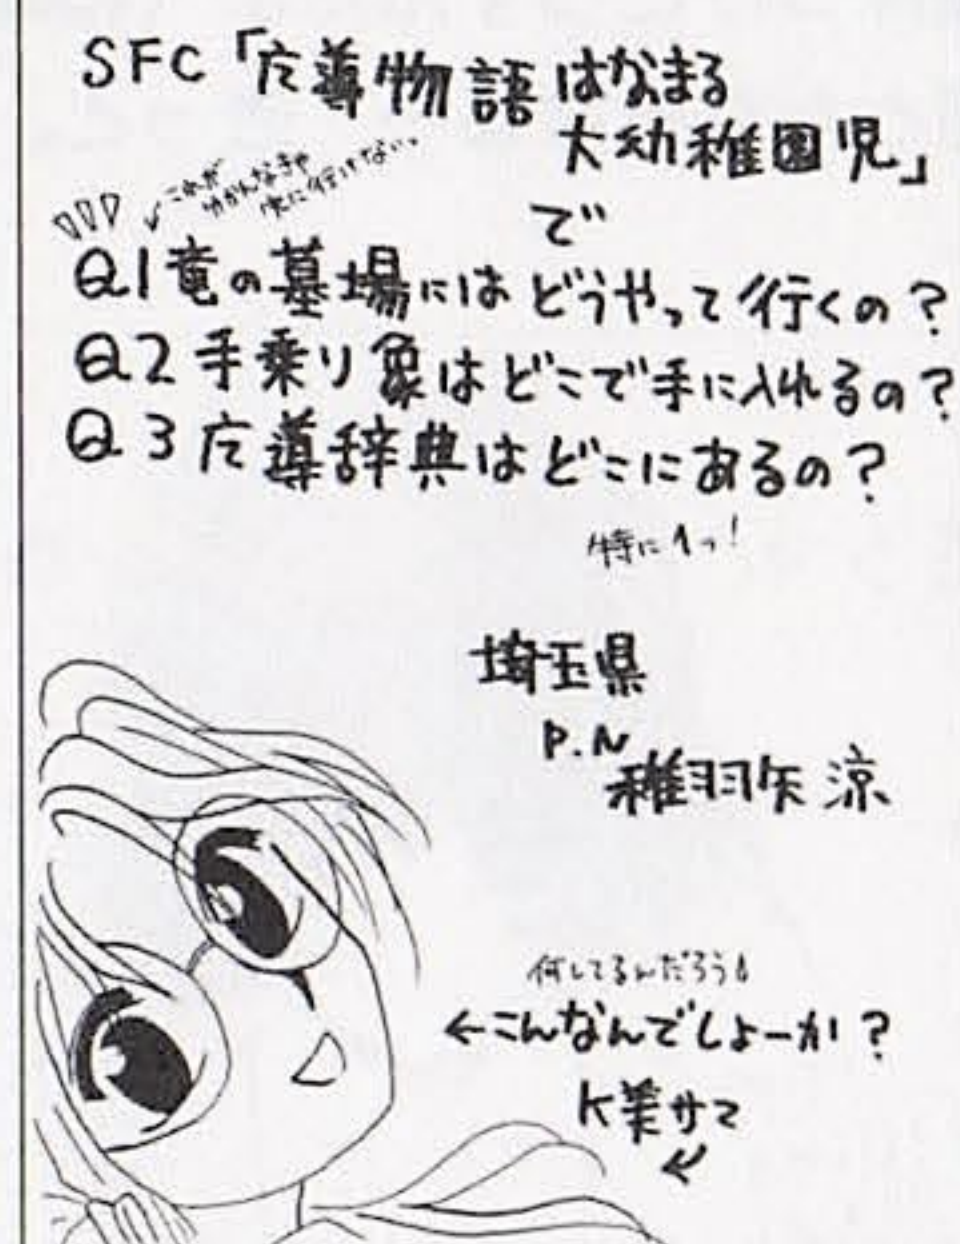 SFC「广導物語 はなまる
大幼稚園児」
で
これが
わかんなきゃ
次に行けない。
Q1 竜の墓場にはどうやって行くの?
Q2 手乗り象はどこで手に入れるの?
Q3 广導辞典はどこにあるの?
特に1っ!
埼玉県
P.N
稚羽矢 涼
何してるんだろう
←こんなんでしょーか?
K峯サマ